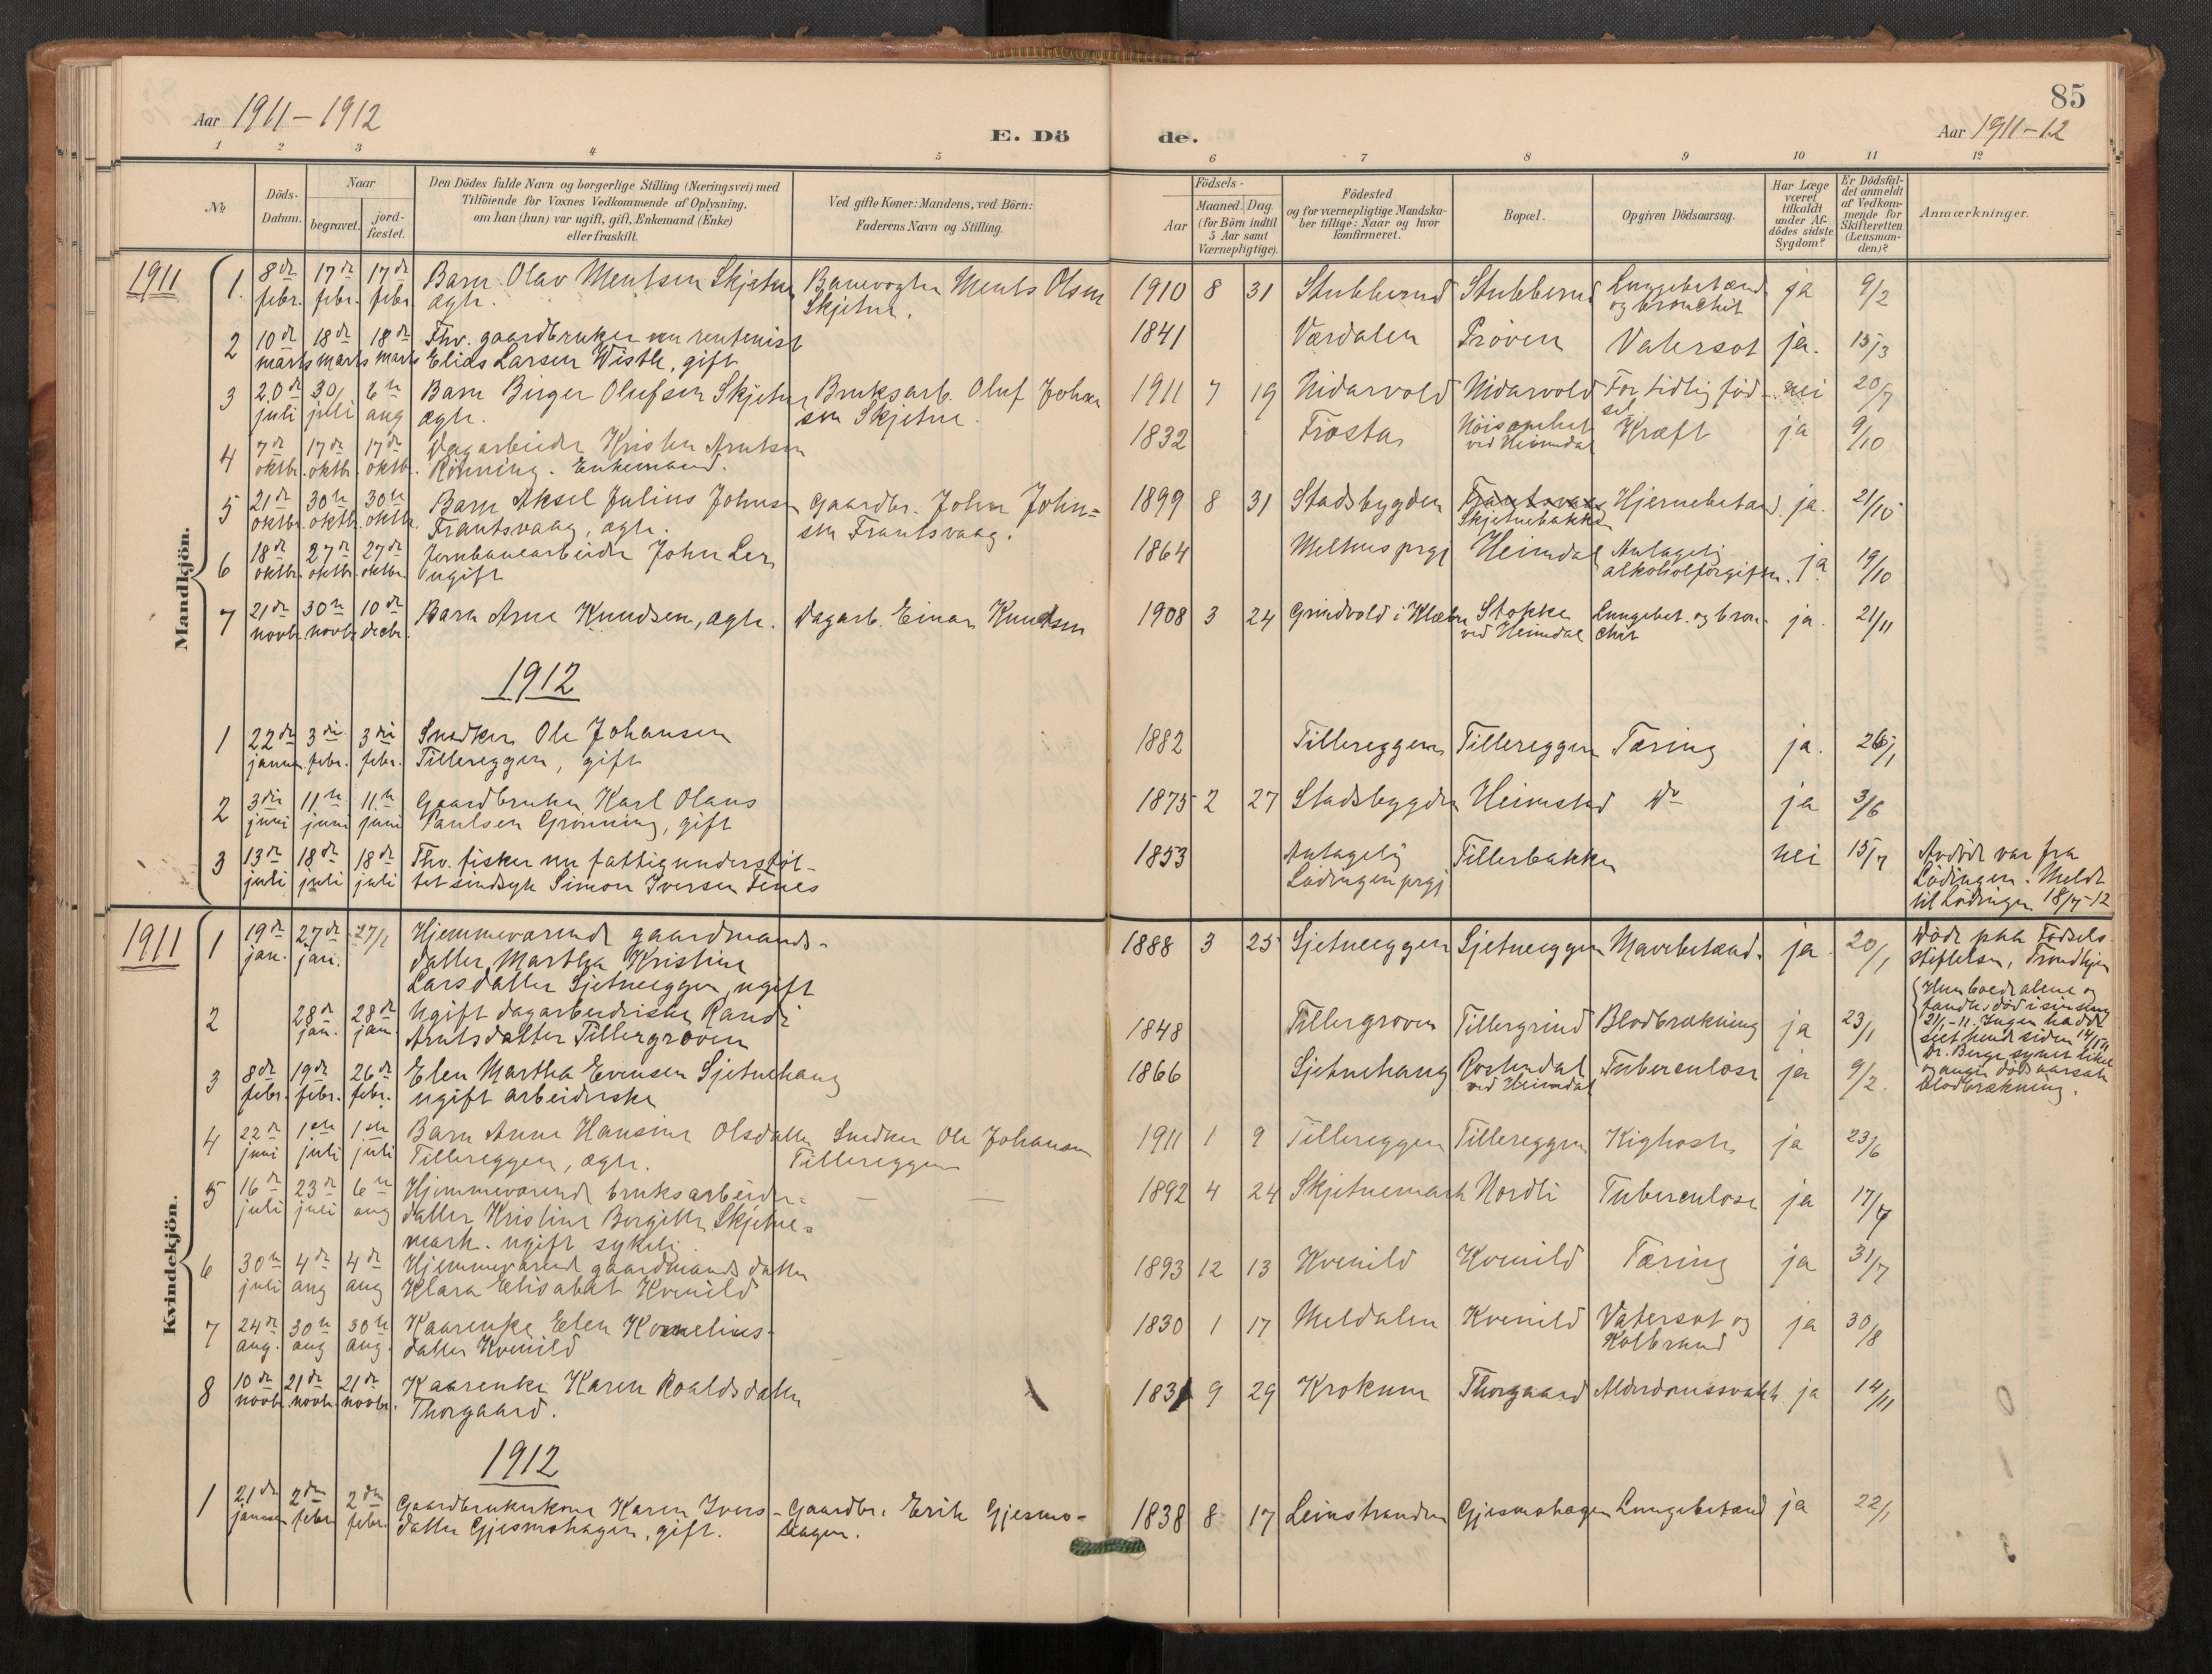 85
Aar 1911–1912
E. Dö
de.
Aar 1911–12
1 2 3 4 5 6 7 8 9 10 11 12
№
Döds-Datum.
Naar
begravet.
jord-fæstet.
Den Dödes fulde Navn og borgerlige Stilling (Næringsvei) med
Tilföiende for Voxnes Vedkommende af Oplysning,
om han (hun) var ugift, gift, Enkemand (Enke)
eller fraskilt.
Ved gifte Koner: Mandens, ved Börn:
Faderens Navn og Stilling.
Födsels-
Aar
Maaned. Dag.
(for Börn indtil
5 Aar samt
Værnepligtige).
Födested
og for værnepligtige Mandska-
ber tillige: Naar og hvor
konfirmeret.
Bopæl.
Opgiven Dödsaarsag.
Har Læge
været
tilkaldt
under Af-
dödes sidste
Sygdom?
Er Dödsfal-
det anmeldt
af Vedkom-
mende for
Skifteretten
(Lensman-
den)?
Anmærkninger.
Mandkjön.
1911
1. 8de 17de 17de Barn Olav Mentsen Skjetne Banevogter Ments Olsen 1910 8 31 Stubberud Stubberud Lungebetænd ja 9/2
febr. febr. febr. ægte. Skjetne. og bronchit
2 10de 18de 18de Fhv. gaardbruker nu rentenist 1841 Værdalen Prøven Vatersot ja. 15/3
marts marts marts Elias Larsen Wisth, gift
3 20de 30/ 6te Barn Birger Olufsen Skjetne Bruksarb. Oluf Johan 1911 7 19 Nidarvold Nidarvold For tidlig fød- nei 20/7
juli juli aug ægte. sen Skjetne. sel
4 7de 17de 17de Dagarbeider Kristen Arntsen 1832 Frosta ja 9/10
oktbr. oktbr. oktbr. Rønning. Enkemand. ved Heimdal Kræft
5 21de 30te 30te Barn Aksel Julius Johnsen Gaardbr. John John= 1899 8 31 Stadsbygden Frantsvaag Hjernebetænd. ja. 21/10
oktbr. oktbr. oktbr. Frantsvaag, ægte. sen Frantsvaag. Skjetnebakken
6 18de 27de 27de Jernbanearbeider John Ler 1864 Melhus prgj Heimdal Antagelig ja 19/10
oktbr. oktbr. oktbr. ugift alkoholforgiftn.
7 21de 30te 10de Barn Arne Knudsen, ægte. Dagarb. Einar Knudsen 1908 3 24 Grindvold i Klæbu Stokke Lungebet. og bron- ja. 21/11
novbr. novbr. decbr. ved Heimdal chit
1912
1 22de 3die 3die Snedker Ole Johansen 1882 Tillereggen Tillereggen Tæring ja. 26/1
januar. febr. febr. Tillereggen, gift
2 3die 11te 11te Gaardbruker Karl Olaus 1875 2 27 Stadsbygden Heimstad do ja 3/6
juni juni juni Paulsen Grønning, gift
3 13de 18de 18de Fhv. fisker nu fattigunderstøt- 1853 Antagelig Tillerbakken nei 15/7 Avdøde var fra
juli juli juli tet sindsyk Simon Iversen Tenes Lødingen prgj Lødingen. Meldt
til Lødingen 18/7-12
Kvindekjön.
1911
1 19de 27de 27/1 Hjemmeværende gaardmands- 1888 3 25 Sjetneeggen Sjetneeggen Mavebetænd. ja. 20/1 Døde paa Fødsels-
jan. jan. datter Martha Kristine stiftelsen, Trondhjem
Larsdatter Sjetneeggen, ugift
2 28de 28de Ugift dagarbeiderske Randi 1848 Tillergroven Tillergrind Blodbrækning ja 23/1 Hun boede alene og
jan. jan. Arntsdatter Tillergroven fandtes død i sin seng
21/1-11. Ingen hadde
seet hende siden
Dr. Berge synet liket
og angav dødsaarsak
blodbrækning.
3 8de 19de 26de Elen Martha Evensen Sjetnehaug 1866 Sjetnehaug Rostendal Tuberculose ja 9/2.
febr. febr. febr. ugift arbeiderske ved Heimdal
4 22de 1ste 1ste Barn Anne Hansine Olsdatter Snedker Ole Johansen 1911 1 9 Tillereggen Tillereggen Kighoste ja 23/6
juni juli juli Tillereggen, ægte. Tillereggen
5 16de 23de 6te Hjemmeværende bruksarbeider= — — 1892 4 24 Skjetnemark Nordli Tuberculose ja 17/7
juli juli aug datter Kristine Bergitte Skjetne=
mark. ugift sykelig
6 30te 4de 4de Hjemmeværende gaardmands datter 1893 12 13 Kvenild Kvenild Tæring ja 31/7
juli aug aug Klara Elisabet Kvenild
7 24de 30te 30te Kaarenke Elen Kornelius- 1830 1 17 Meldalen Kvenild Vatersot og ja 30/8
aug. aug aug. datter Kvenild Kolbrand
8 10de 21de 21de Kaarenke Karen Roaldsdatter 1831 9 29 Krokum Thorgaard Alderdomssvakh. ja 14/11
novbr. novbr. novbr. Thorgaard.
1912
1 21de 2den 2den Gaardbrukerkone Karen Ivers- Gaardbr. Erik Gjesmo- 1838 8 17 Leinstranden Gjesmohagen Lungebetænd ja 22/1
januar febr. febr. datter Gjesmohagen, gift. hagen.